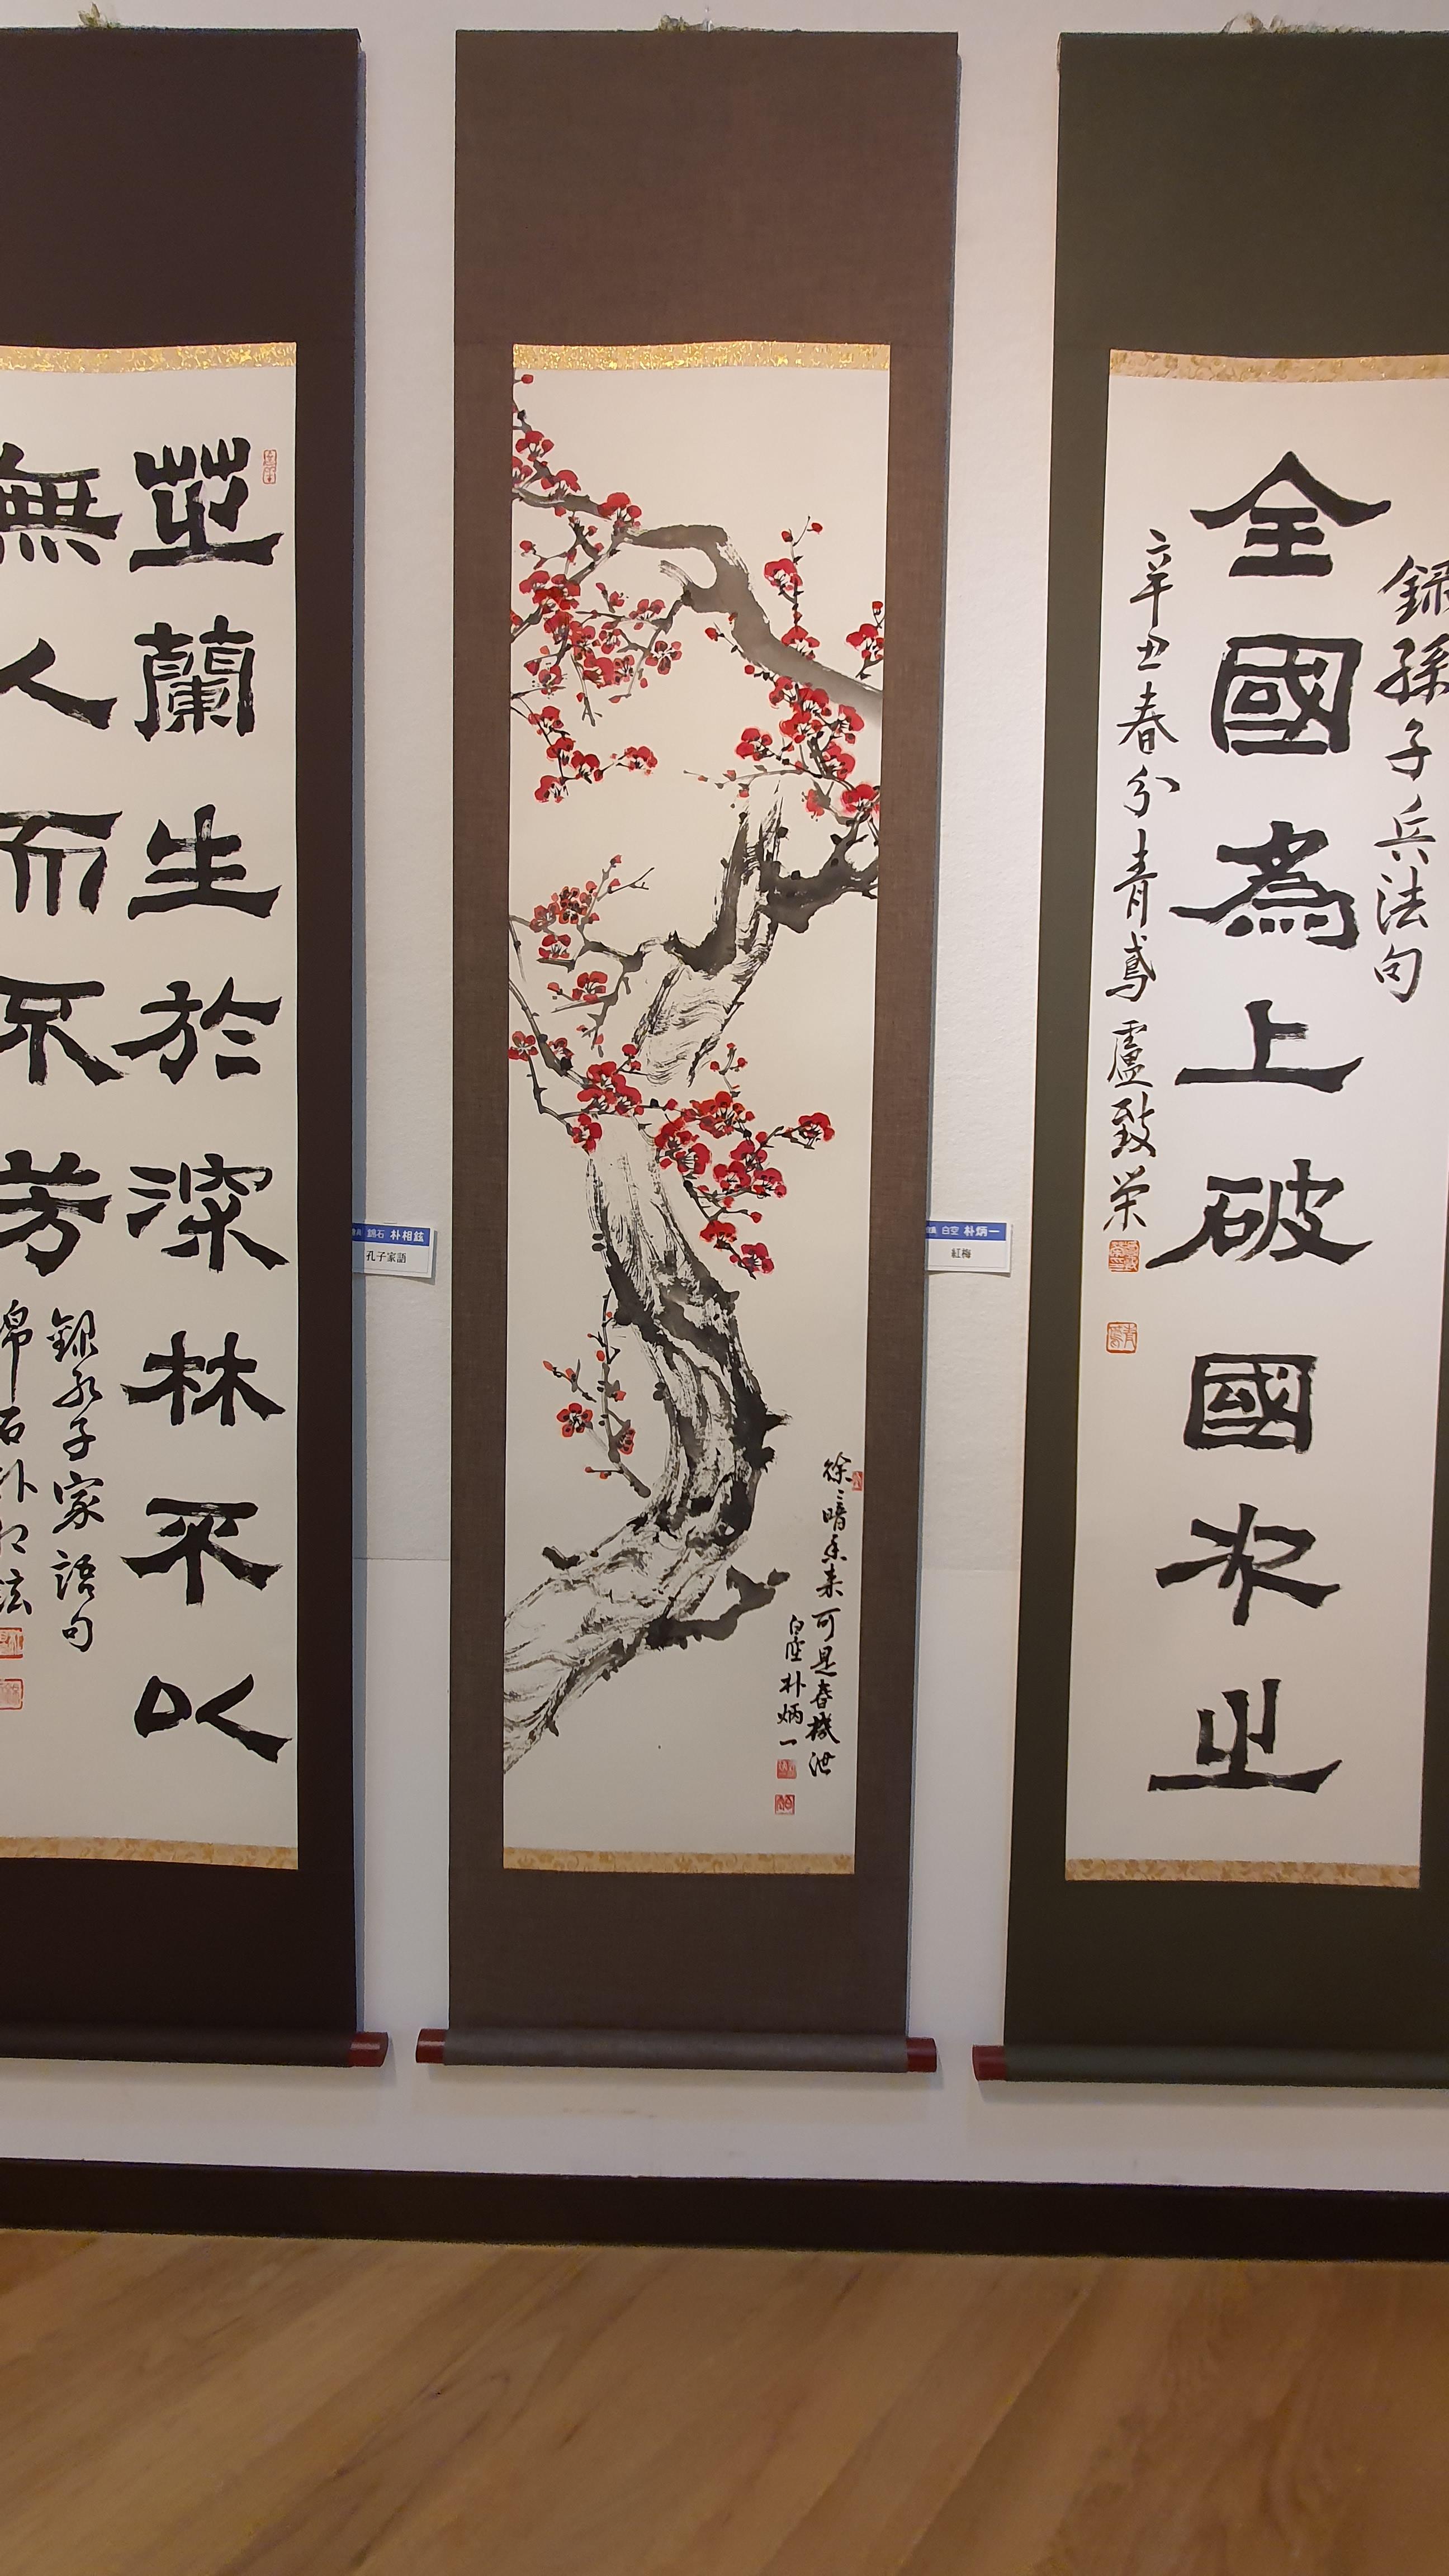 芷蘭生於深林不以
無人而不芳
錄孔子家語句
錦石朴相鉉
錦石 朴相鉉
孔子家語
徐〻暗香来可是春機泄
白空朴炳一
白空 朴炳一
紅梅
錄孫子兵法句
全國為上破國次之
辛丑春分青鳶盧致栄